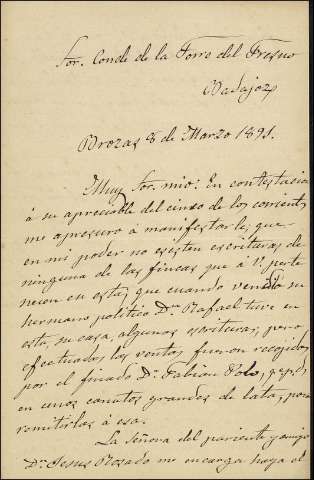 Sor. Conde de la Torre del Fresno
Badajoz
Brozas 8 de Marzo 1891.
Muy Sor. mio: En contestacion
á su apreciable del cinco de los corrientes
me apresuro á manifestarle, que
en mi poder no existen escrituras de
ninguna de las fincas que á V. perte
necen en esta, que cuando vendió su
hermano politico Dn. Rafael tuve en
esta, su casa, algunas escrituras; pero,
efectuadas las ventas fueron recojidas
por el finado Dn. Fabian Polo,
en unos canutos grandes de lata, para
remitirlas á esa.
La señora del pariente y amigo
Dn. Jesus Rosado me encarga haga el